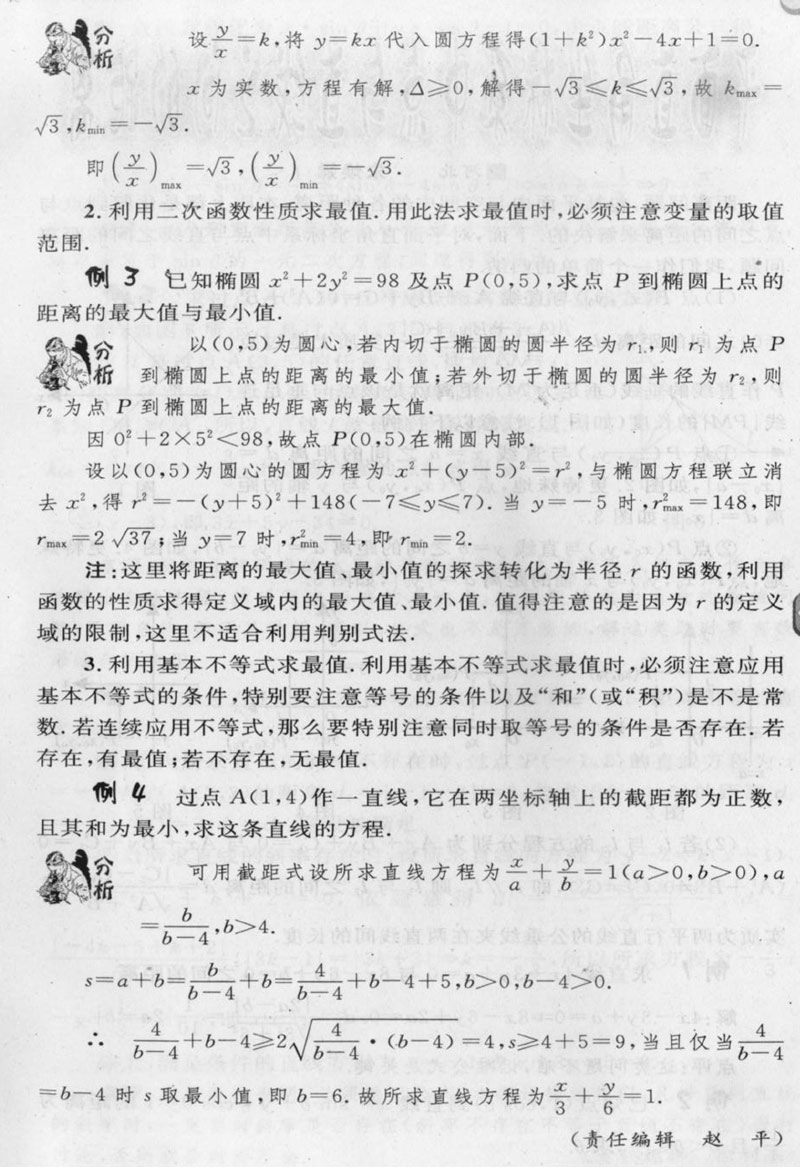 分析 设y/x=k,将 y=kx 代入圆方程得(1+k²)x²-4x+1=0.
x 为实数,方程有解,Δ≥0,解得-√3≤k≤√3,故 kmax=
√3,kmin=-√3.
即(y/x)max=√3,(y/x)min=-√3.
2. 利用二次函数性质求最值. 用此法求最值时,必须注意变量的取值
范围.
例 3 已知椭圆 x²+2y²=98 及点 P(0,5),求点 P 到椭圆上点的
距离的最大值与最小值.
分析 以(0,5)为圆心,若内切于椭圆的圆半径为 r₁,则 r₁ 为点 P
到椭圆上点的距离的最小值;若外切于椭圆的圆半径为 r₂,则
r₂ 为点 P 到椭圆上点的距离的最大值.
因 0²+2×5²<98,故点 P(0,5)在椭圆内部.
设以(0,5)为圆心的圆方程为 x²+(y-5)²=r²,与椭圆方程联立消
去 x²,得 r²=-(y+5)²+148(-7≤y≤7). 当 y=-5 时,r²max=148,即
rmax=2√37;当 y=7 时,r²min=4,即 rmin=2.
注:这里将距离的最大值、最小值的探求转化为半径 r 的函数,利用
函数的性质求得定义域内的最大值、最小值. 值得注意的是因为 r 的定义
域的限制,这里不适合利用判别式法.
3. 利用基本不等式求最值. 利用基本不等式求最值时,必须注意应用
基本不等式的条件,特别要注意等号的条件以及“和”(或“积”)是不是常
数. 若连续应用不等式,那么要特别注意同时取等号的条件是否存在. 若
存在,有最值;若不存在,无最值.
例 4 过点 A(1,4)作一直线,它在两坐标轴上的截距都为正数,
且其和为最小,求这条直线的方程.
分析 可用截距式设所求直线方程为 x/a+y/b=1(a>0,b>0),a
=b/(b-4),b>4.
s=a+b=b/(b-4)+b=4/(b-4)+b-4+5,b>0,b-4>0.
∴ 4/(b-4)+b-4≥2√(4/(b-4)·(b-4))=4,s≥4+5=9,当且仅当4/(b-4)
=b-4 时 s 取最小值,即 b=6. 故所求直线方程为 x/3+y/6=1.
(责任编辑 赵 平)